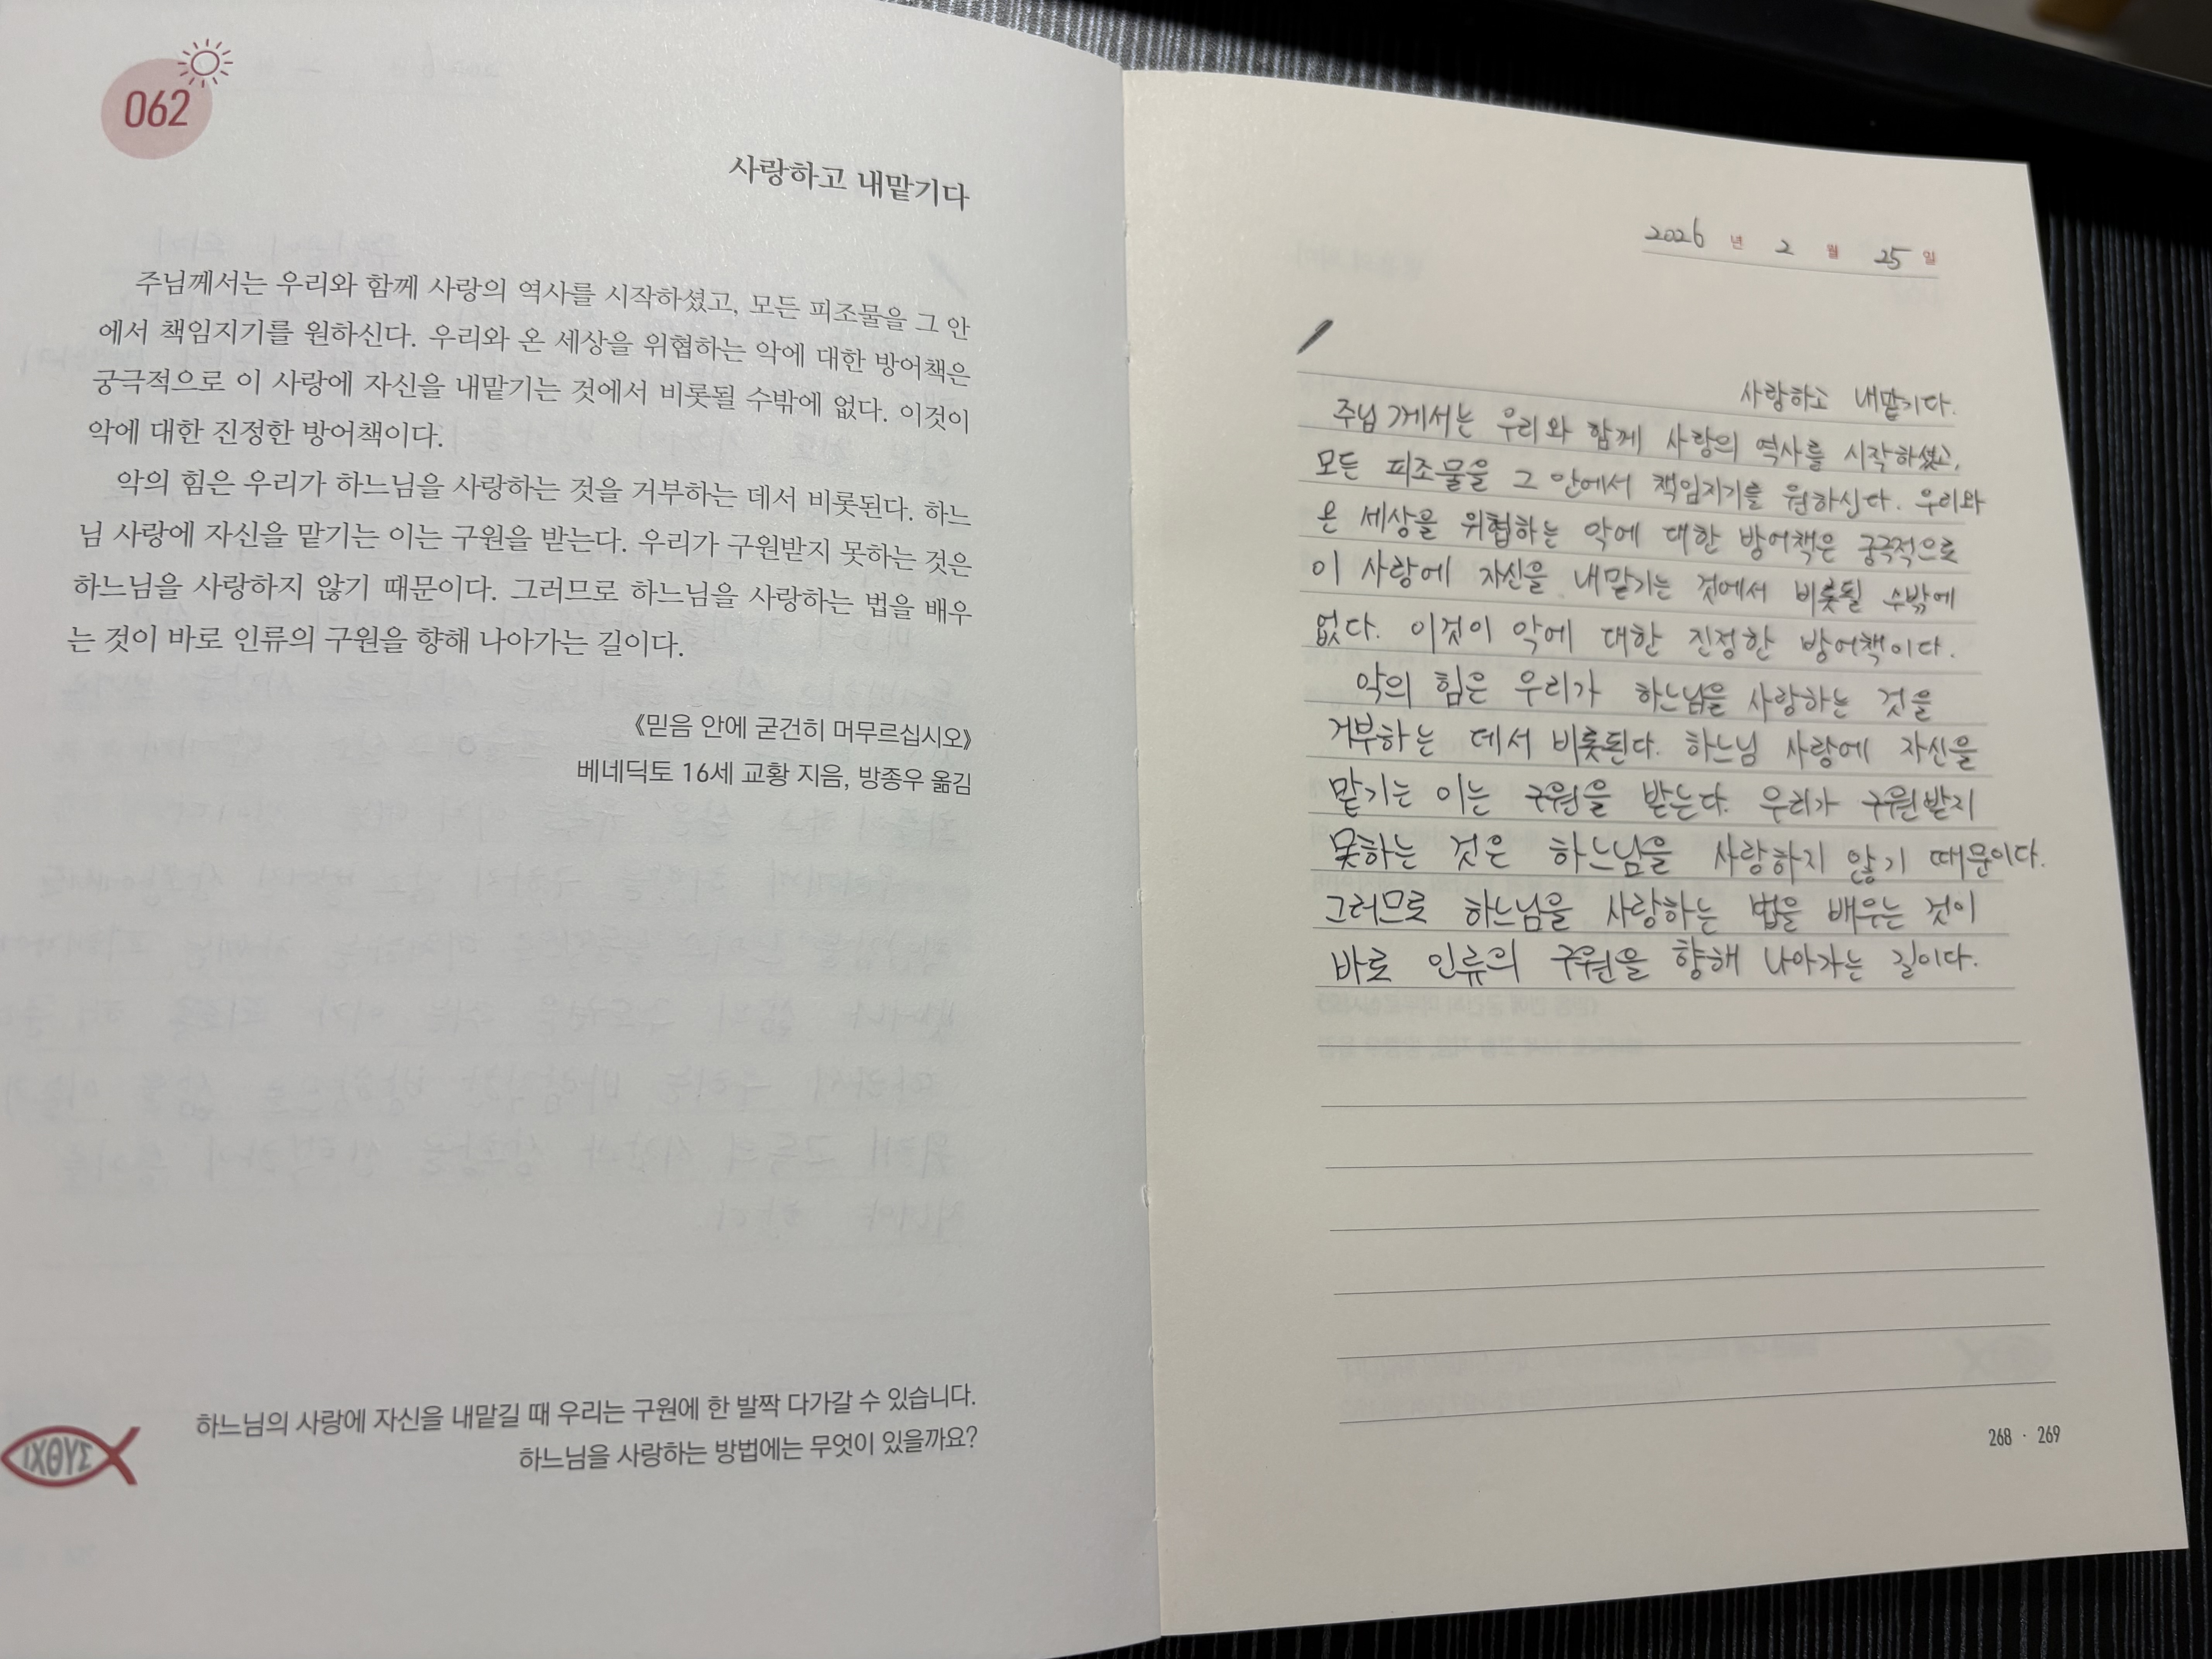 062
사랑하고 내맡기다
주님께서는 우리와 함께 사랑의 역사를 시작하셨고, 모든 피조물을 그 안
에서 책임지기를 원하신다. 우리와 온 세상을 위협하는 악에 대한 방어책은
궁극적으로 이 사랑에 자신을 내맡기는 것에서 비롯될 수밖에 없다. 이것이
악에 대한 진정한 방어책이다.
악의 힘은 우리가 하느님을 사랑하는 것을 거부하는 데서 비롯된다. 하느
님 사랑에 자신을 맡기는 이는 구원을 받는다. 우리가 구원받지 못하는 것은
하느님을 사랑하지 않기 때문이다. 그러므로 하느님을 사랑하는 법을 배우
는 것이 바로 인류의 구원을 향해 나아가는 길이다.
《믿음 안에 굳건히 머무르십시오》
베네딕토 16세 교황 지음, 방종우 옮김
하느님의 사랑에 자신을 내맡길 때 우리는 구원에 한 발짝 다가갈 수 있습니다.
하느님을 사랑하는 방법에는 무엇이 있을까요?
ΙΧΘΥΣ
2026 년 2 월 25 일
사랑하고 내맡기다.
주님께서는 우리와 함께 사랑의 역사를 시작하셨고,
모든 피조물을 그 안에서 책임지기를 원하신다. 우리와
온 세상을 위협하는 악에 대한 방어책은 궁극적으로
이 사랑에 자신을 내맡기는 것에서 비롯될 수밖에
없다. 이것이 악에 대한 진정한 방어책이다.
악의 힘은 우리가 하느님을 사랑하는 것을
거부하는 데서 비롯된다. 하느님 사랑에 자신을
맡기는 이는 구원을 받는다. 우리가 구원받지
못하는 것은 하느님을 사랑하지 않기 때문이다.
그러므로 하느님을 사랑하는 법을 배우는 것이
바로 인류의 구원을 향해 나아가는 길이다.
268 · 269